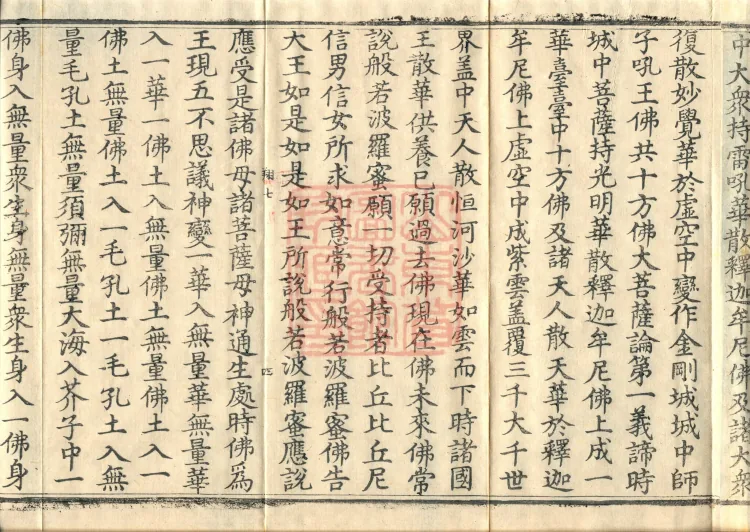 中大衆持雷吼華散釋迦牟尼佛及諸大衆
復散妙覺華於虛空中變作金剛城城中師
子吼王佛共十方佛大菩薩論第一義諦時
城中菩薩持光明華散釋迦牟尼佛上成一
華臺臺中十方佛及諸天人散天華於釋迦
牟尼佛上虛空中成紫雲盖覆三千大千世
界盖中天人散恒河沙華如雲而下時諸國
王散華供養已願過去佛現在佛未來佛常
說般若波羅蜜願一切受持者比丘比丘尼
信男信女所求如意常行般若波羅蜜佛告
大王如是如是如王所說般若波羅蜜應說
翔七 四
應受是諸佛母諸菩薩母神通生處時佛爲
王現五不思議神變一華入無量華無量華
入一華一佛土入無量佛土無量佛土入一
佛土無量佛土入一毛孔土一毛孔土入無
量毛孔土無量須彌無量大海入芥子中一
佛身入無量衆生身無量衆生身入一佛身